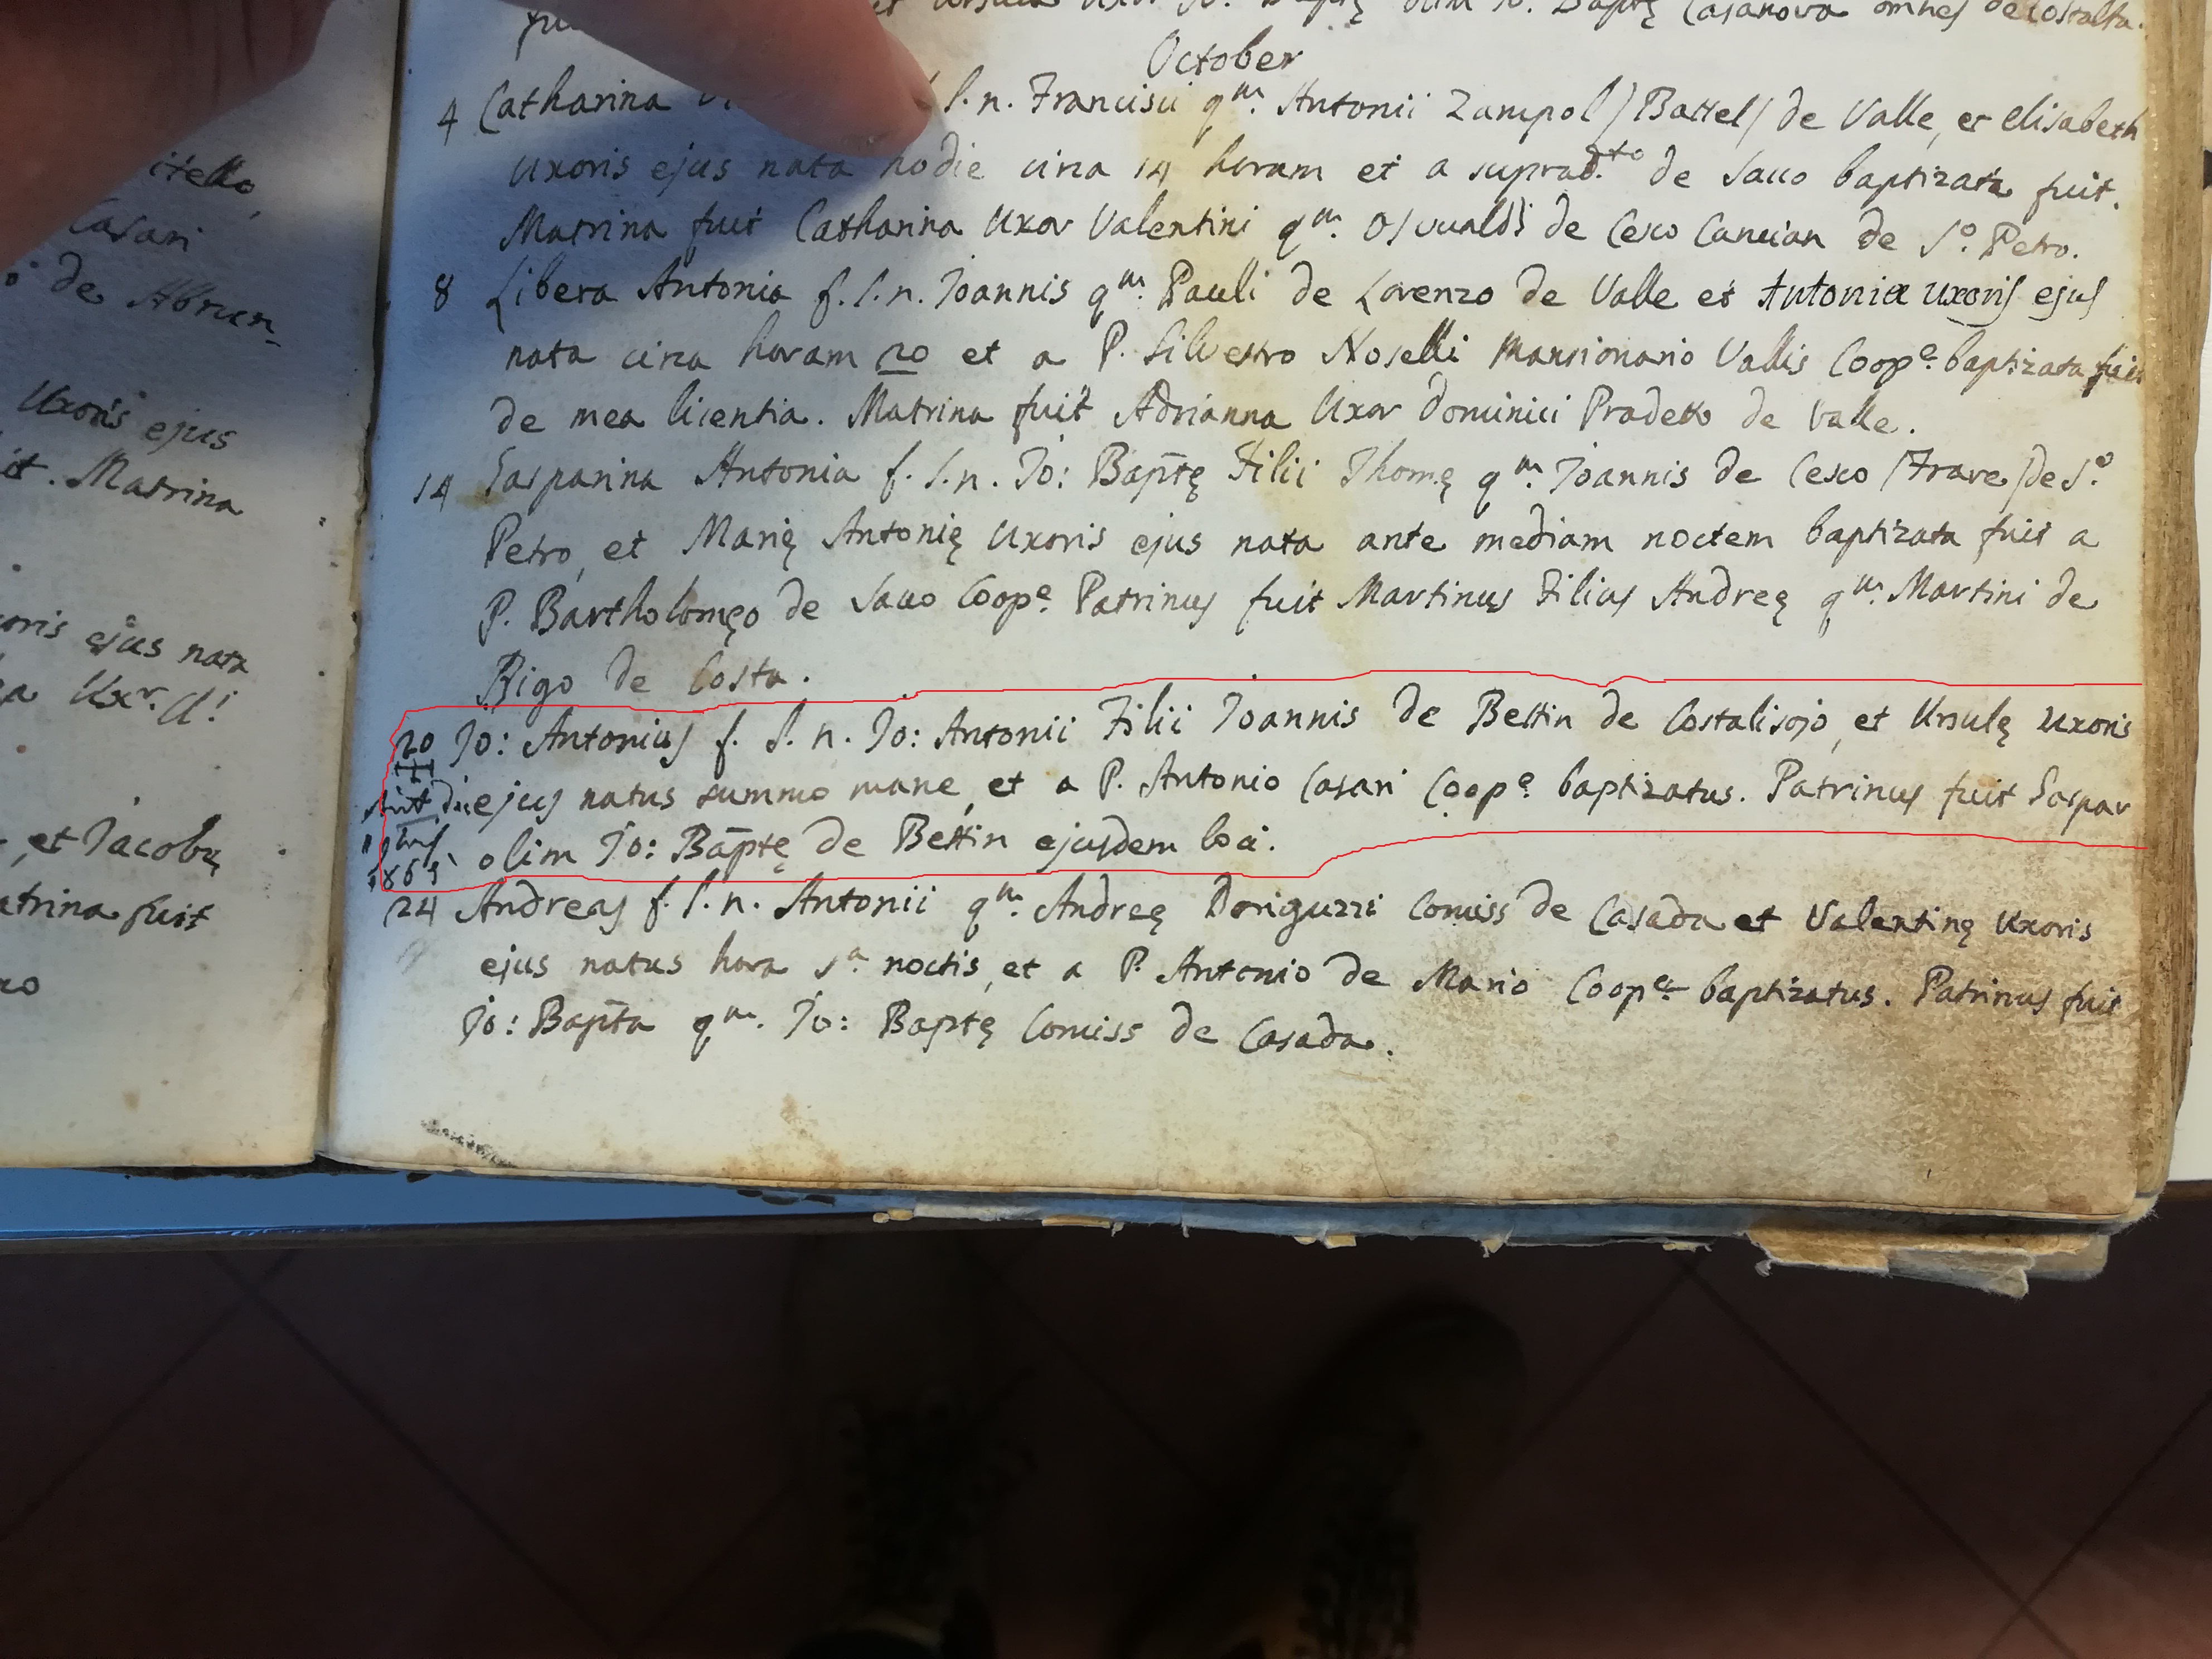 itello,
Casari
de Abrun
Uxoris ejus
it. Matrina
oris ejus nata
a Uxr.
, et Jacobę
atrina fuit
et Ursula Uxor Jo: Baptę olim Jo: Baptę Casanova omnes de Costalta.
October
4 Catharina f. n. Francisci qm. Antonii Zampol / Battel / de Valle, et Elisabeth
Uxoris ejus nata hodie circa 14 horam et a suprad.to de Sacco baptizata fuit.
Matrina fuit Catharina Uxor Valentini qm. Osvualdi de Cesco Cancian de S.o Petro.
8 Libera Antonia f. l. n. Joannis qm. Pauli de Lorenzo de Valle et Antoniæ uxoris ejus
nata circa horam 20 et a P. Silvestro Noselli Mansionario Vallis Coop.e baptizata fuit
de mea licentia. Matrina fuit Adrianna Uxor Dominici Pradetto de Valle.
14 Gasparina Antonia f. l. n. Jo: Baptę Filii Thomę qm. Joannis de Cesco / Frare / de S.o
Petro, et Marię Antonię Uxoris ejus nata ante mediam noctem baptizata fuit a
P. Bartholomęo de Sacco Coop.e Patrinus fuit Martinus Filius Andreę qm. Martini de
Rigo de Costa.
20 Jo: Antonius f. l. n. Jo: Antonii Filii Joannis de Bettin de Costalisojo, et Ursulę Uxoris
ejus natus summo mane, et a P. Antonio Casari Coop.e baptizatus. Patrinus fuit Gaspar
olim Jo: Baptę de Bettin ejusdem loci.
1865
24 Andreas f. l. n. Antonii qm. Andreę Doriguzzi Comiss de Casada et Valentinę Uxoris
ejus natus hora 5a noctis, et a P. Antonio de Mario Coop.e baptizatus. Patrinus fuit
Jo: Bapta qm. Jo: Baptę Comiss de Casada.